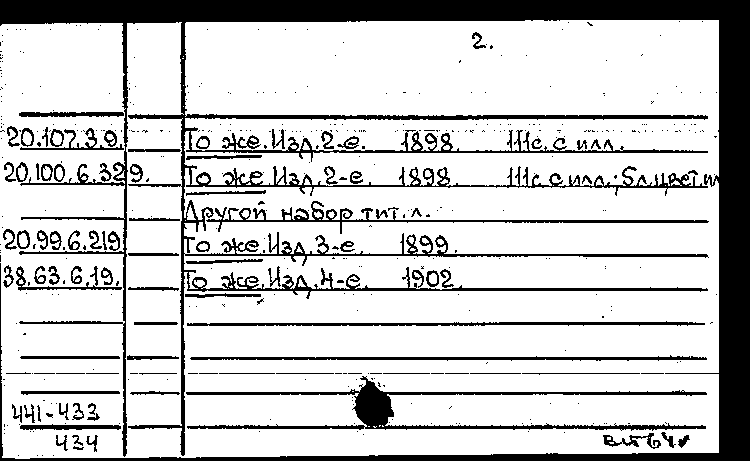 2.
20.107.3.9. То же. Изд. 2-е. 1898. 111с. с илл.
20.100.6.329. То же. Изд. 2-е. 1898. 111с. с илл.; 5л. цвет. ил
Другой набор тит. л.
20.99.6.219 То же. Изд. 3-е. 1899.
38.63.6.19. То же. Изд. 4-е. 1902.
441-433
434